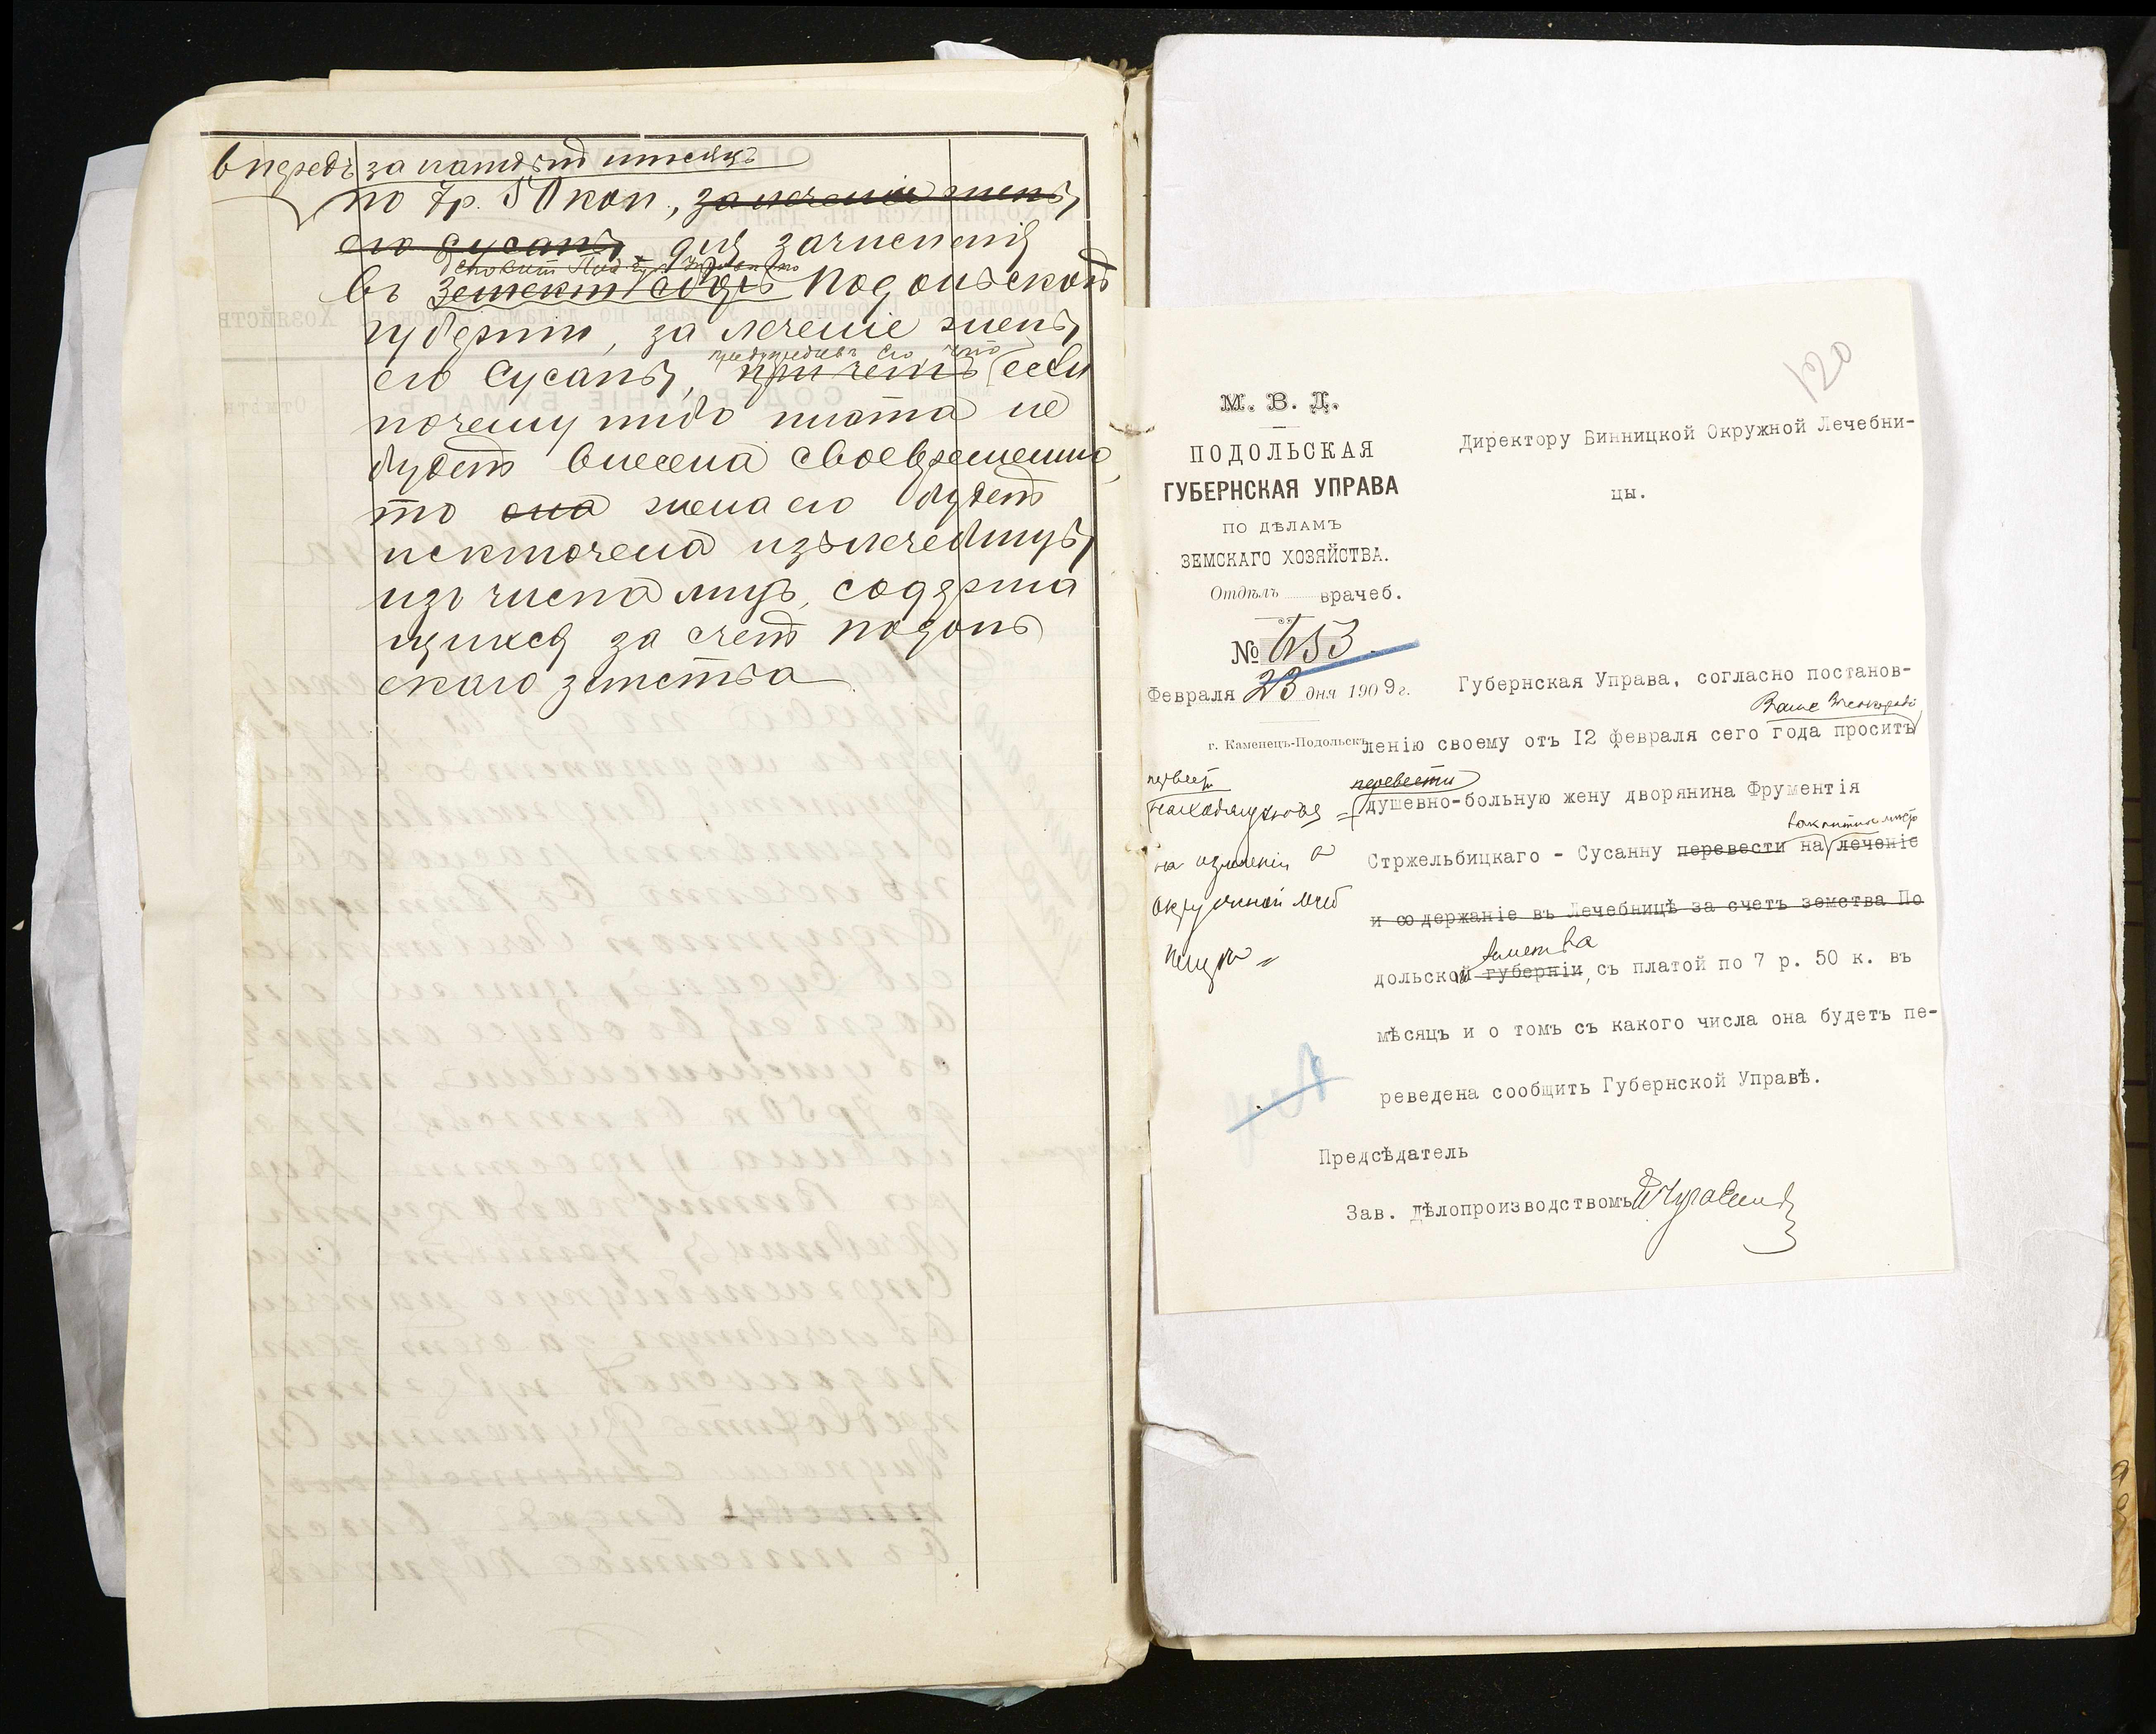 впередъ за каждый мѣсяцъ
по 7р. 50 коп., за леченіе жены
его Сусаны, для зачисленія
въ земскій сборъ Подольской
губерніи, за леченіе жены
предупредивъ его, что
его Сусаны, при чемъ если
почему либо плата не
будетъ внесена своевременно,
то она жена его будетъ
исключена изъ лечебницы,
изъ числа лицъ, содержа
щихся за счетъ Подоль
скаго земства
120
М. В. Д.
ПОДОЛЬСКАЯ
ГУБЕРНСКАЯ УПРАВА
ПО ДѢЛАМЪ
ЗЕМСКАГО ХОЗЯЙСТВА.
Отдѣлъ врачеб.
№ 653
Февраля 23 дня 1909 г.
г. Каменецъ-Подольскъ
Директору Винницкой Окружной Лечебни-
цы.
Губернская Управа, согласно постанов-
Ваше
ленію своему отъ 12 февраля сего года проситъ
перевести
душевно-больную жену дворянина Фрументія
Стржельбицкаго - Сусанну перевести на леченіе
и содержаніе въ Лечебницѣ за счетъ земства По
земства
дольской губерніи, съ платой по 7 р. 50 к. въ
мѣсяцъ и о томъ съ какого числа она будетъ пе-
реведена сообщить Губернской Управѣ.
находящуюся
на излеченіи въ
окружной леч
Предсѣдатель
Зав. дѣлопроизводствомъ